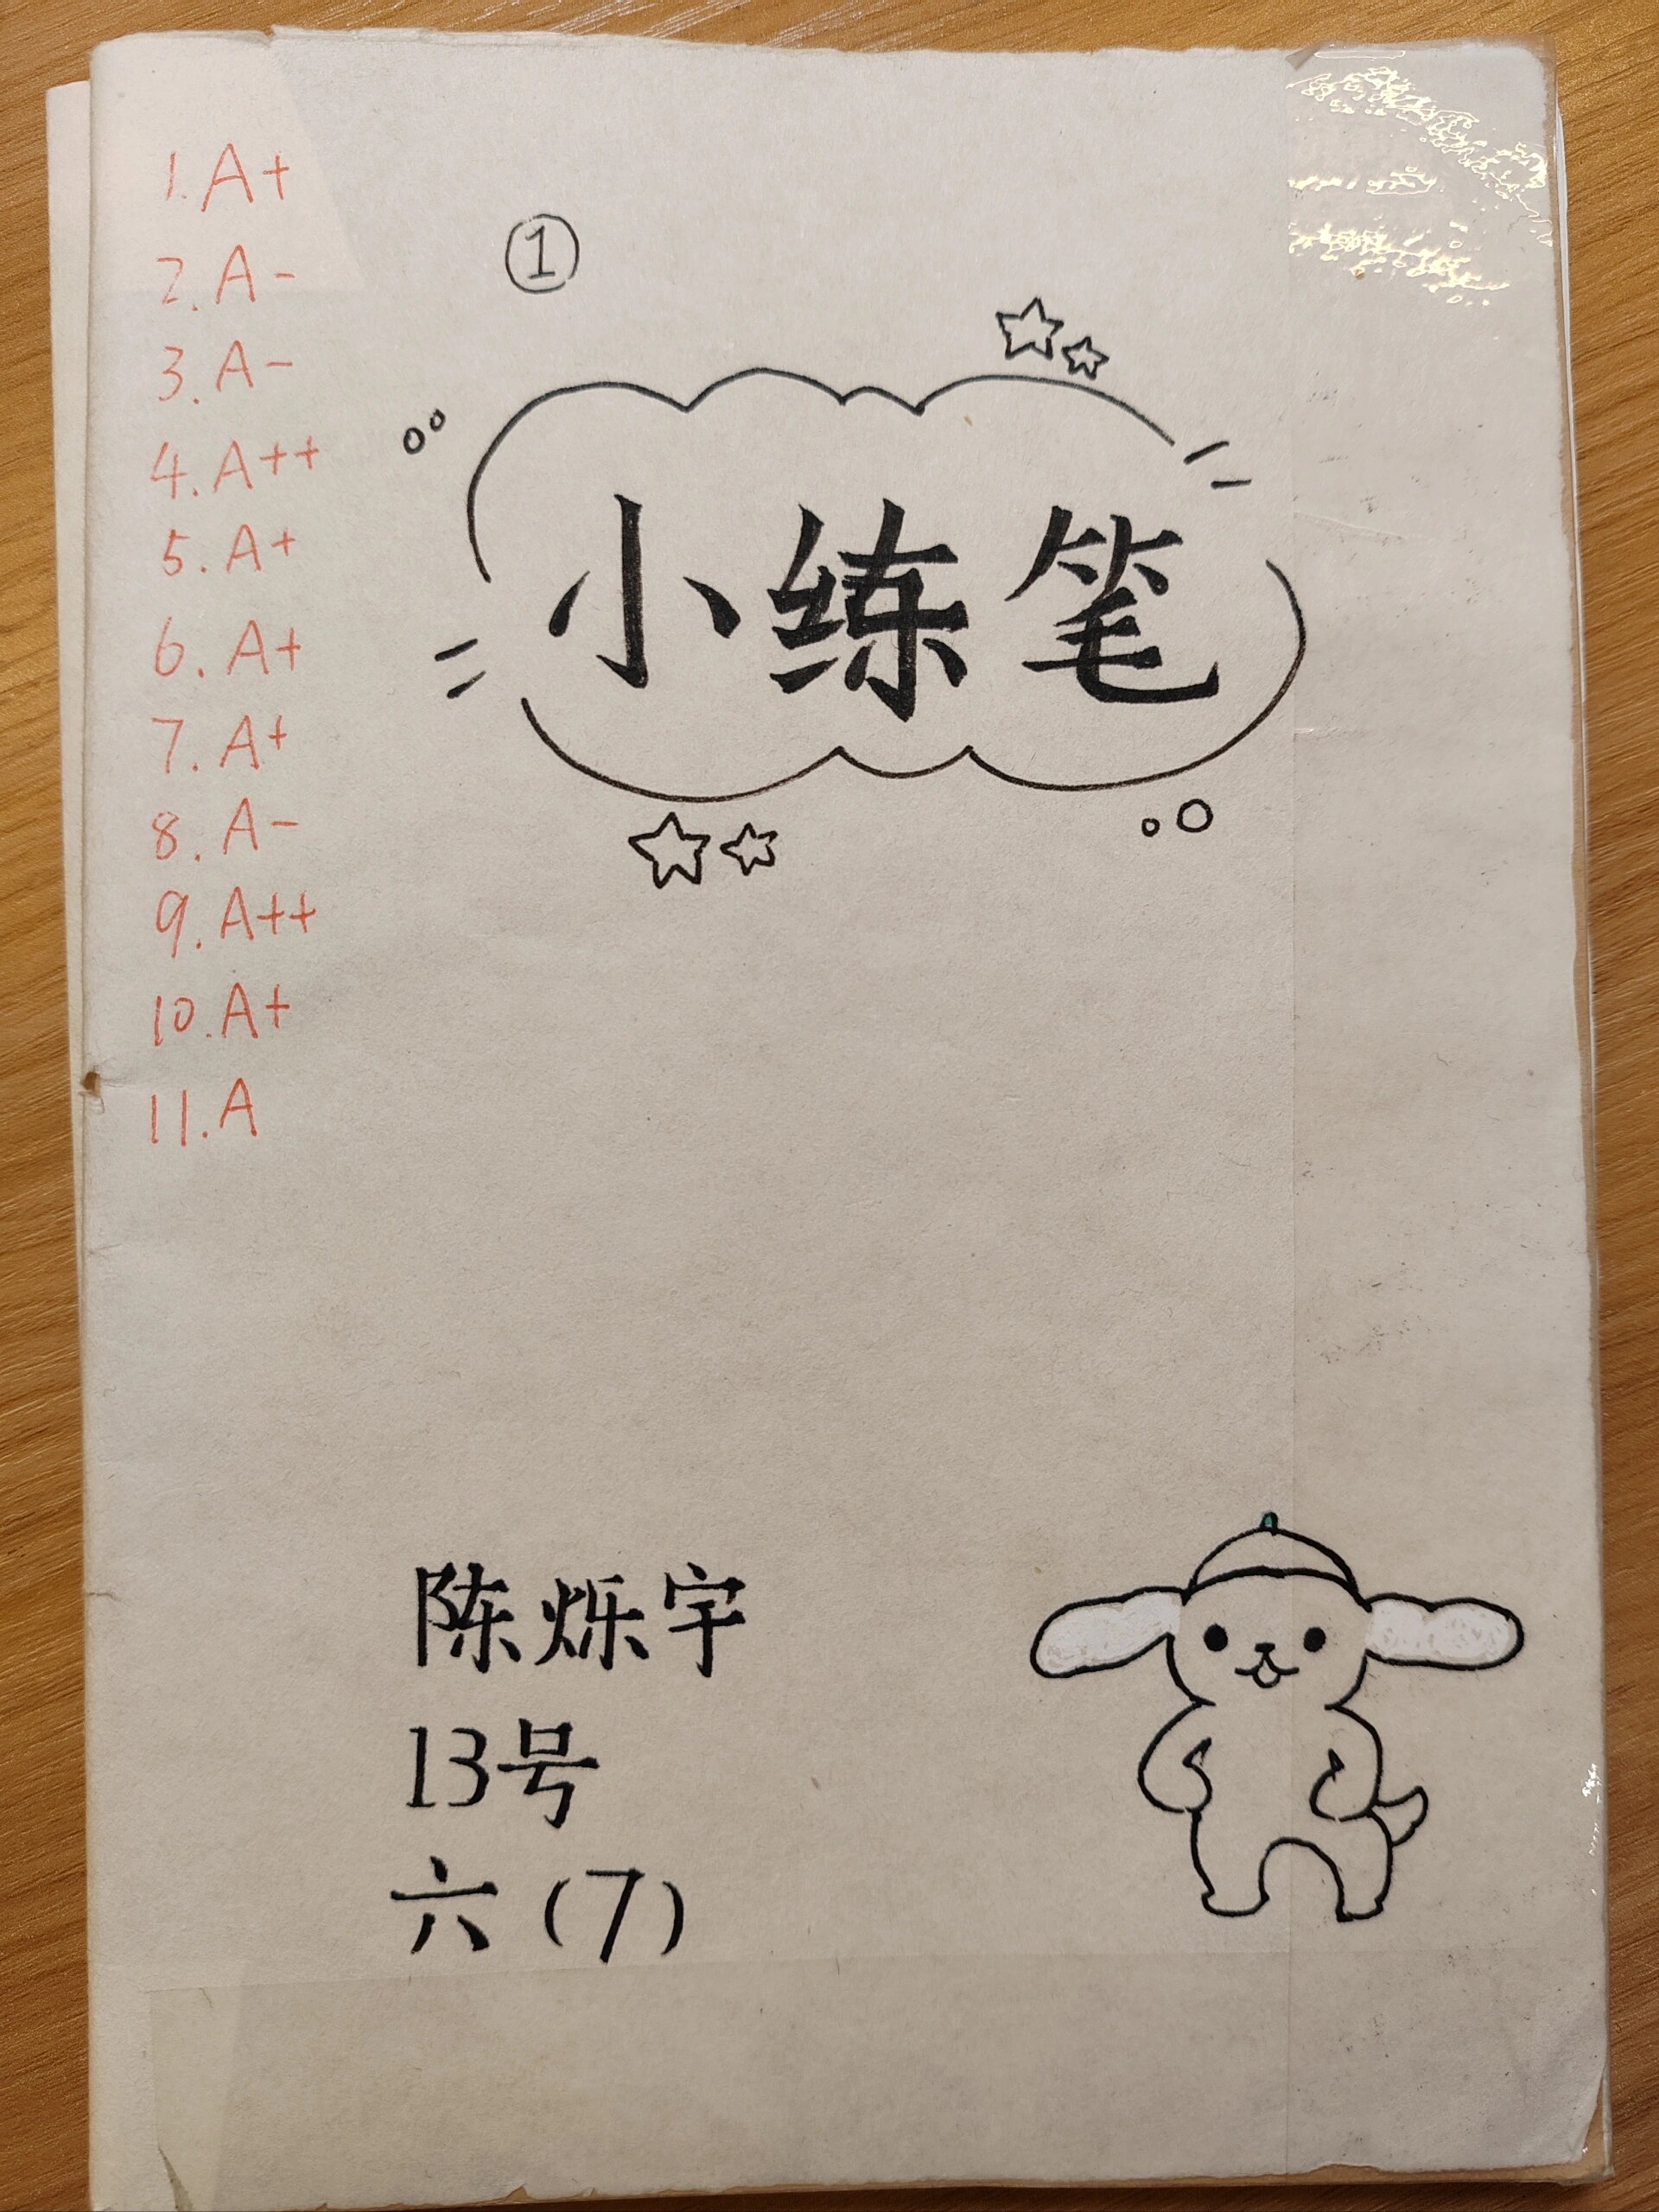 1. A+
2. A-
3. A-
4. A++
5. A+
6. A+
7. A+
8. A-
9. A++
10. A+
11. A
①
小练笔
陈烁宇
13号
六(7)